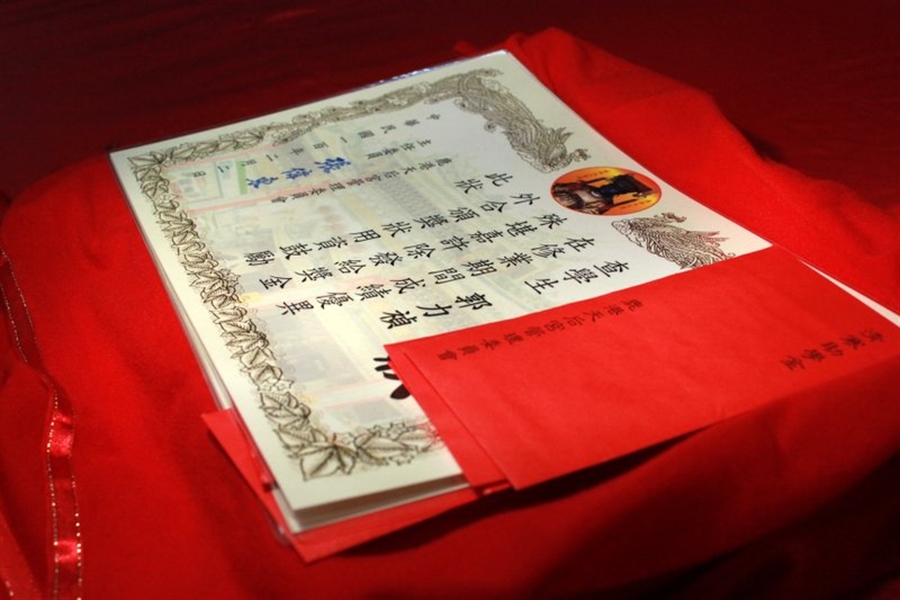 查學生 郭力禎
在修業期間成績優異
殊堪嘉許除發給獎金
外合頒獎狀用資鼓勵
此狀
鹿港天后宮管理委員會
主任委員 張偉東
中華民國一百年二月 日
清寒助學金
鹿港天后宮管理委員會